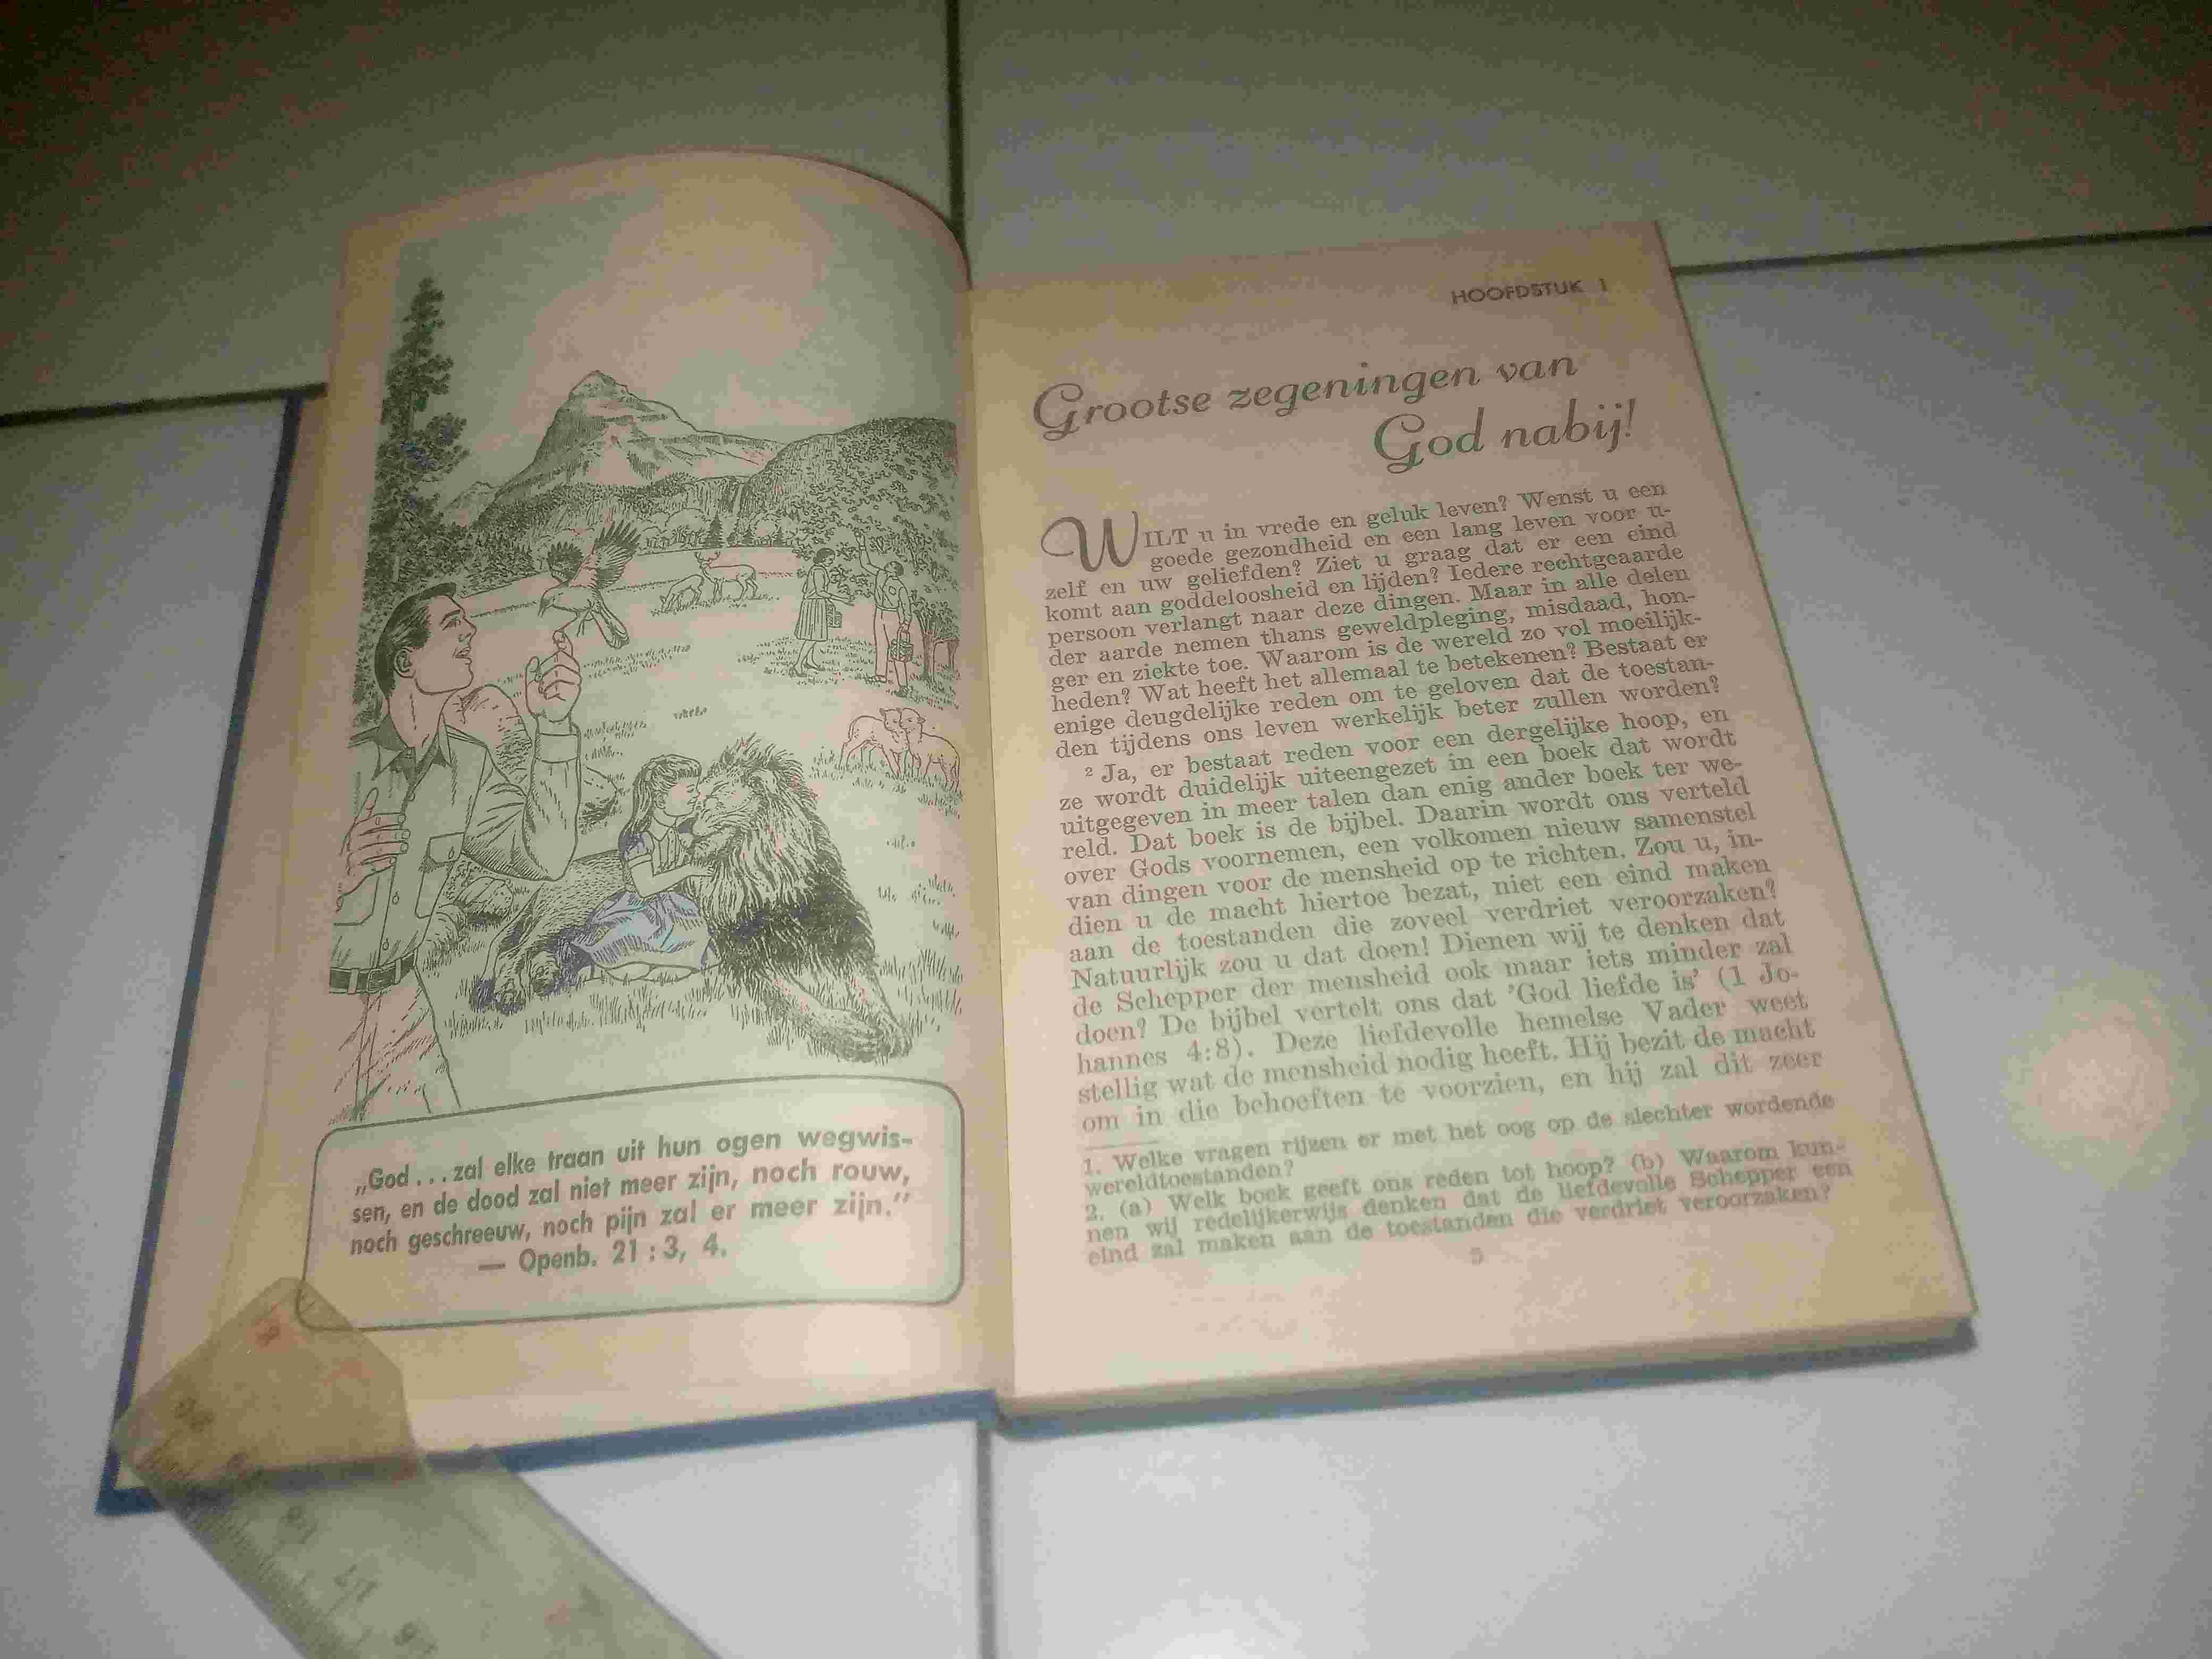 „God . . . zal elke traan uit hun ogen wegwis-
sen, en de dood zal niet meer zijn, noch rouw,
noch geschreeuw, noch pijn zal er meer zijn.”
— Openb. 21 : 3, 4.
HOOFDSTUK 1
Grootse zegeningen van
God nabij!
WILT u in vrede en geluk leven? Wenst u een
goede gezondheid en een lang leven voor u-
zelf en uw geliefden? Ziet u graag dat er een eind
komt aan goddeloosheid en lijden? Iedere rechtgeaarde
persoon verlangt naar deze dingen. Maar in alle delen
der aarde nemen thans geweldpleging, misdaad, hon-
ger en ziekte toe. Waarom is de wereld zo vol moeilijk-
heden? Wat heeft het allemaal te betekenen? Bestaat er
enige deugdelijke reden om te geloven dat de toestan-
den tijdens ons leven werkelijk beter zullen worden?
² Ja, er bestaat reden voor een dergelijke hoop, en
ze wordt duidelijk uiteengezet in een boek dat wordt
uitgegeven in meer talen dan enig ander boek ter we-
reld. Dat boek is de bijbel. Daarin wordt ons verteld
over Gods voornemen, een volkomen nieuw samenstel
van dingen voor de mensheid op te richten. Zou u, in-
dien u de macht hiertoe bezat, niet een eind maken
aan de toestanden die zoveel verdriet veroorzaken?
Natuurlijk zou u dat doen! Dienen wij te denken dat
de Schepper der mensheid ook maar iets minder zal
doen? De bijbel vertelt ons dat ’God liefde is’ (1 Jo-
hannes 4:8). Deze liefdevolle hemelse Vader weet
stellig wat de mensheid nodig heeft. Hij bezit de macht
om in die behoeften te voorzien, en hij zal dit zeer
1. Welke vragen rijzen er met het oog op de slechter wordende
wereldtoestanden?
2. (a) Welk boek geeft ons reden tot hoop? (b) Waarom kun-
nen wij redelijkerwijs denken dat de liefdevolle Schepper een
eind zal maken aan de toestanden die verdriet veroorzaken?
5